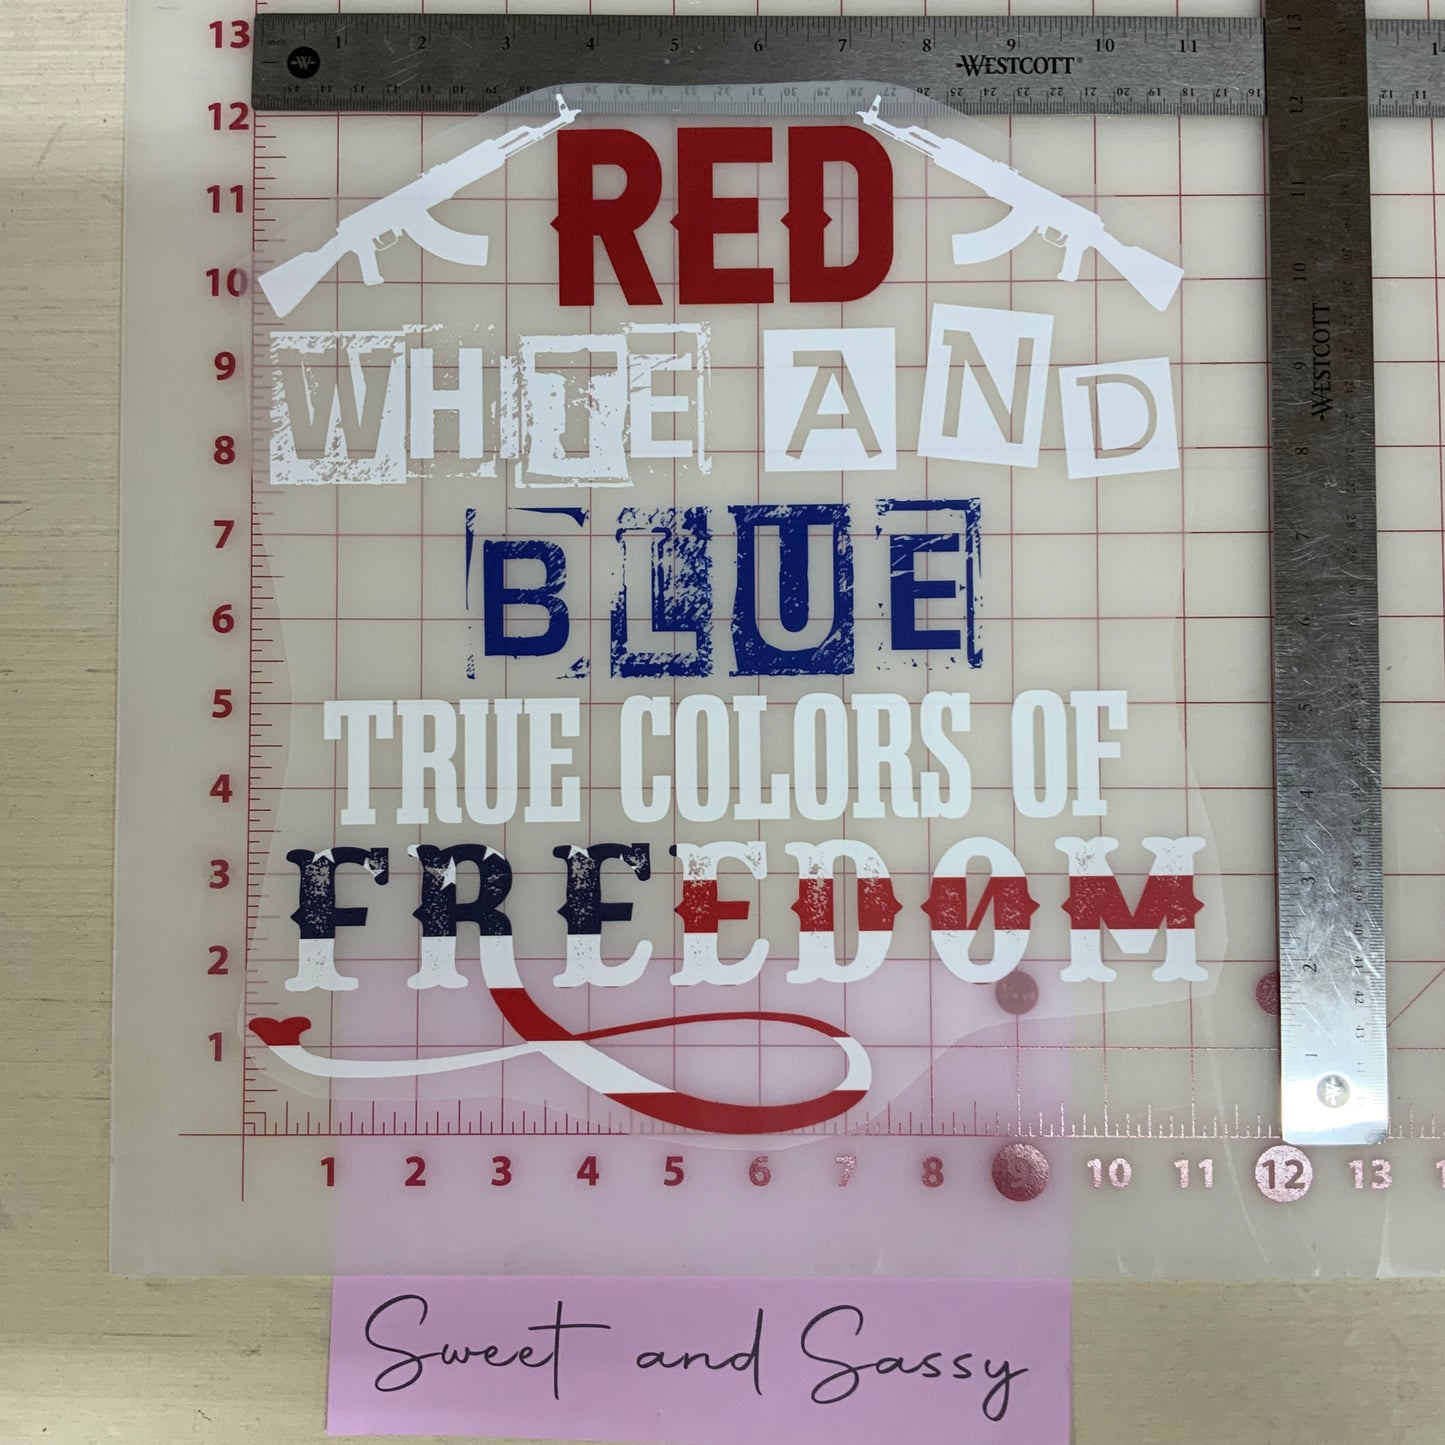 13
inch 1 2 3 4 5 6 7 8 9 10 11
WESTCOTT
12
RED
11
10
WHITE AND
9
8
BLUE
7
6
WESTCOTT
TRUE COLORS OF
5
4
FREEDOM
3
2
1
1 2 3 4 5 6 7 8 9 10 11 12 13
Sweet and Sassy